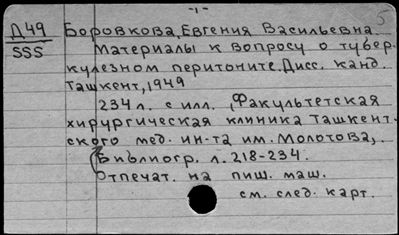 -1-
5
Д49
555
Боровкова, Евгения Васильевна.
Материалы к вопросу о тубер-
кулезном перитоните. Дисс. канд.
Ташкент, 1949
234 л. с илл. (Факультетская
хирургическая клиника Ташкент-
ского мед. ин-та им. Молотова).
Библиогр. л. 218-234.
Отпечат. на пиш. маш.
см. след. карт.